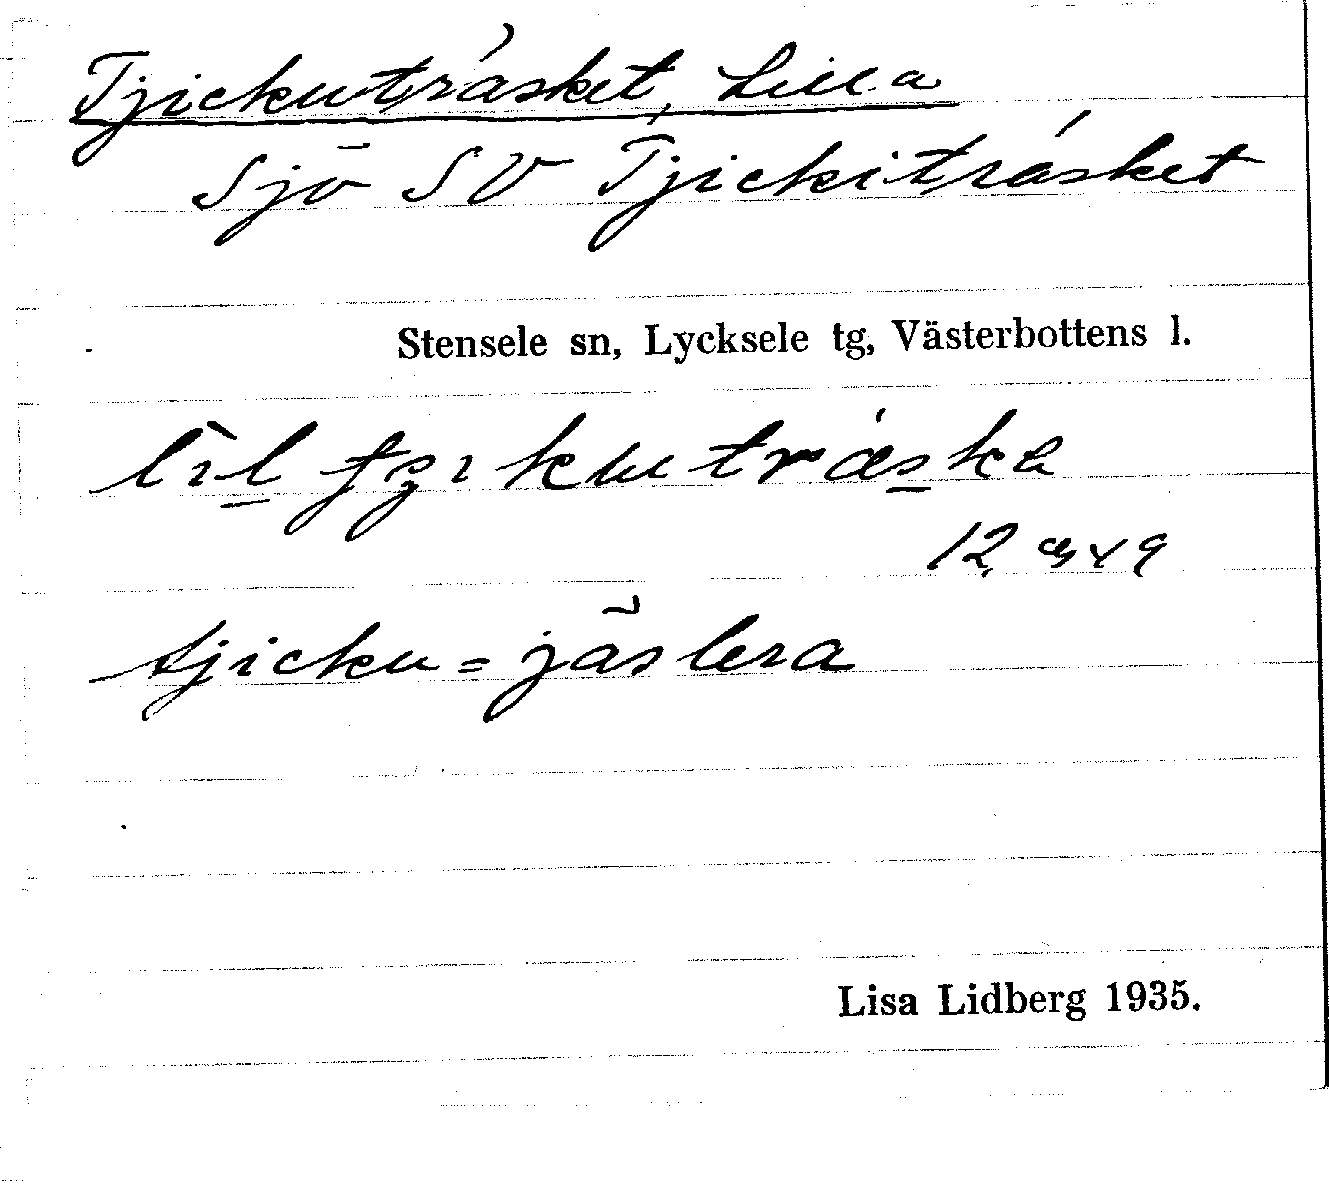 Tjickuträsket, Lilla
Sjö SV Tjickiträsket
Stensele sn, Lycksele tg, Västerbottens l.
tjicku = jäslera
Lisa Lidberg 1935.